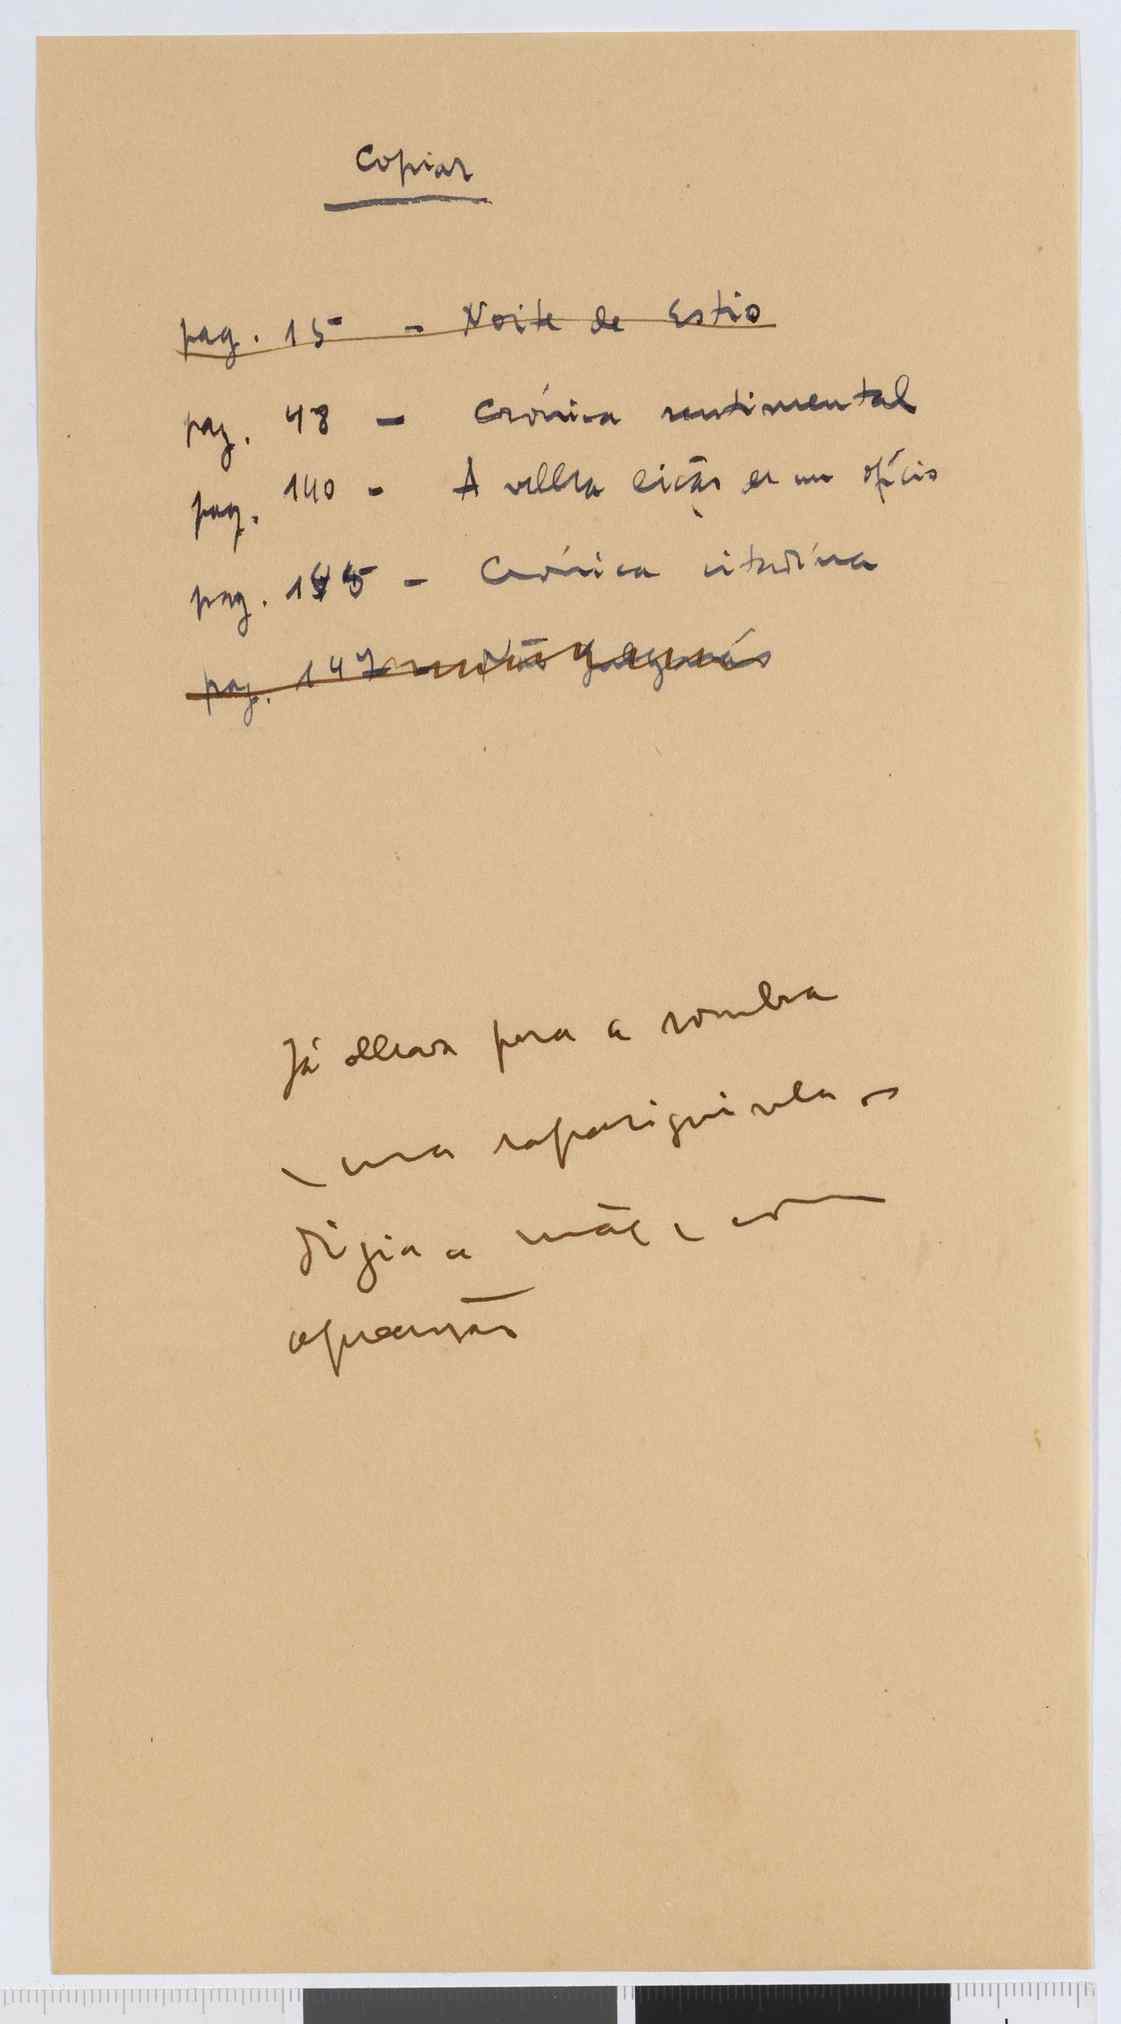 Copiar
pag. 15 - Noite de Estio
pag. 48 - Crónica sentimental
pag. 140 - A velha lição e um ofício
pag. 145 - Crónica citadina
pag. 147 - Não
Já olhava para a sombra
uma rapariguinha
dizia a mãe, com
apreensão